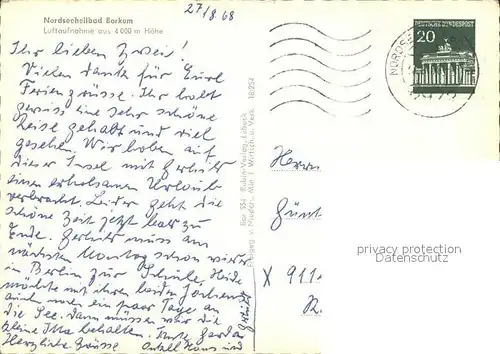 27/8.68
Nordseeheilbad Borkum
Luftaufnahme aus 4000 m Höhe
Ihr lieben Zwei!
Vielen Dank für Eure
Feriengrüsse. Ihr habt
gewiss eine sehr schöne
Reise gehabt und viel
gesehen. Wir haben auf
dieser Insel mit
einen erholsamen Urlaub
verbracht. Leider geht die
schöne Zeit jetzt bald zu
Ende. muss am
nächsten Montag schon wieder
in Berlin zur Schule, Heide
möchte mit ihren beiden
auch noch ein paar Tage an
die See. Dann müssen wir die
kleine behalten. Tante Gerda
Herzliche Grüsse Onkel Hans und
Bor 954 Rubin-Verlag, Lübeck
DEUTSCHE BUNDESPOST
20
NORDSEE
Herrn
Günt
X 911
privacy protection
Datenschutz